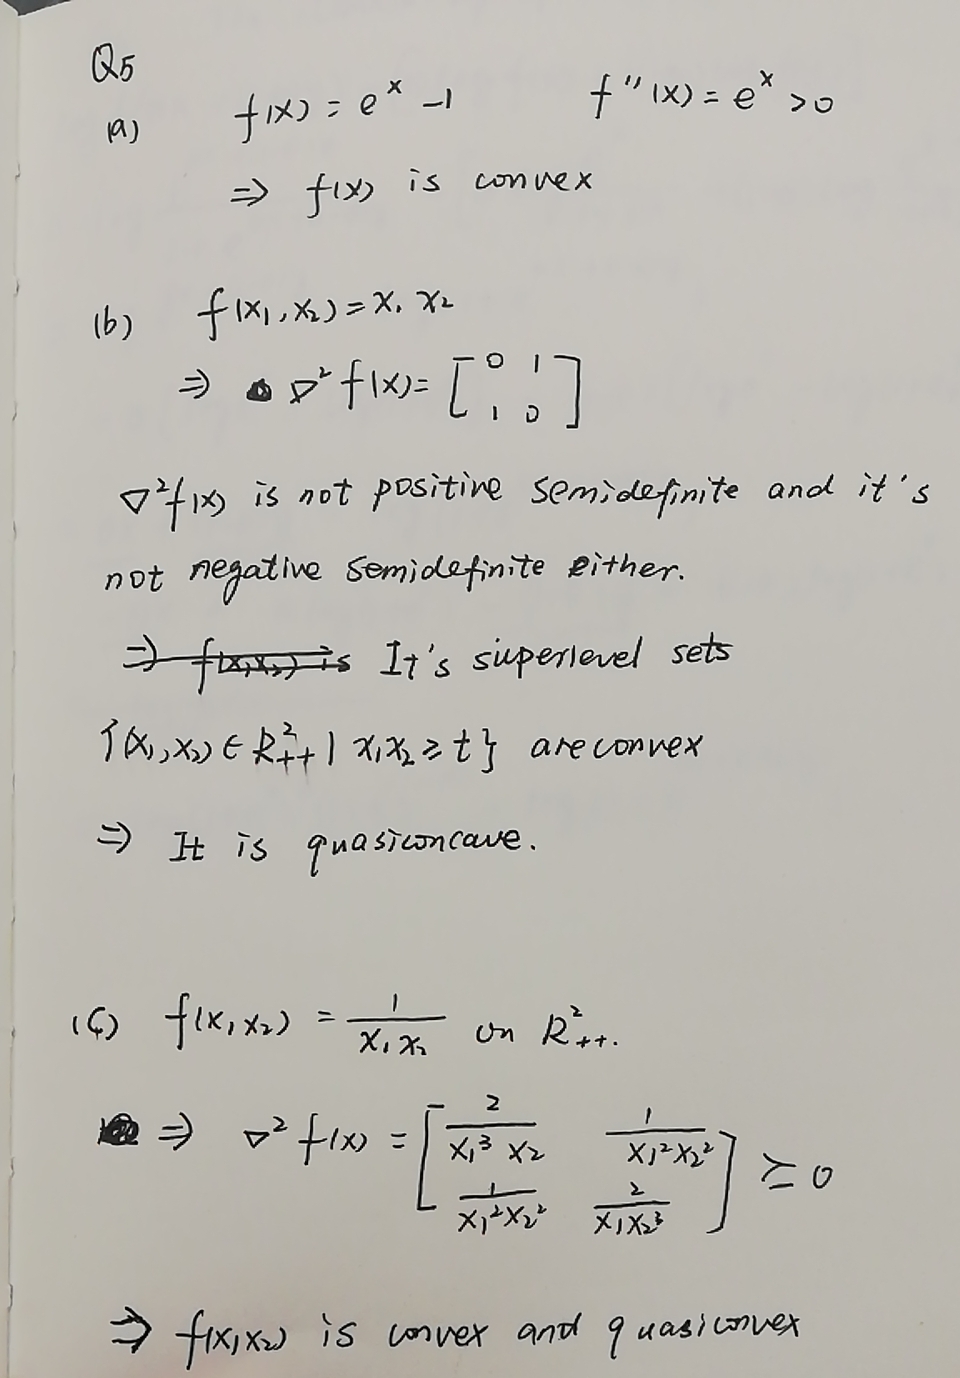 Q5
(a) f(x) = e^x - 1 f''(x) = e^x > 0
⇒ f(x) is convex
(b) f(x₁, x₂) = x₁ x₂
⇒ ∇²f(x) = [0 1
1 0]
∇²f(x) is not positive semidefinite and it's
not negative semidefinite either.
⇒ f(x₁x₂) is It's superlevel sets
{(x₁, x₂) ∈ R²₊₊ | x₁x₂ ≥ t} are convex
⇒ It is quasiconcave.
(c) f(x₁x₂) = 1/(x₁x₂) on R²₊₊.
⇒ ∇²f(x) = [2/(x₁³x₂) 1/(x₁²x₂²)
1/(x₁²x₂²) 2/(x₁x₂³)] ⪰ 0
⇒ f(x₁x₂) is convex and quasiconvex